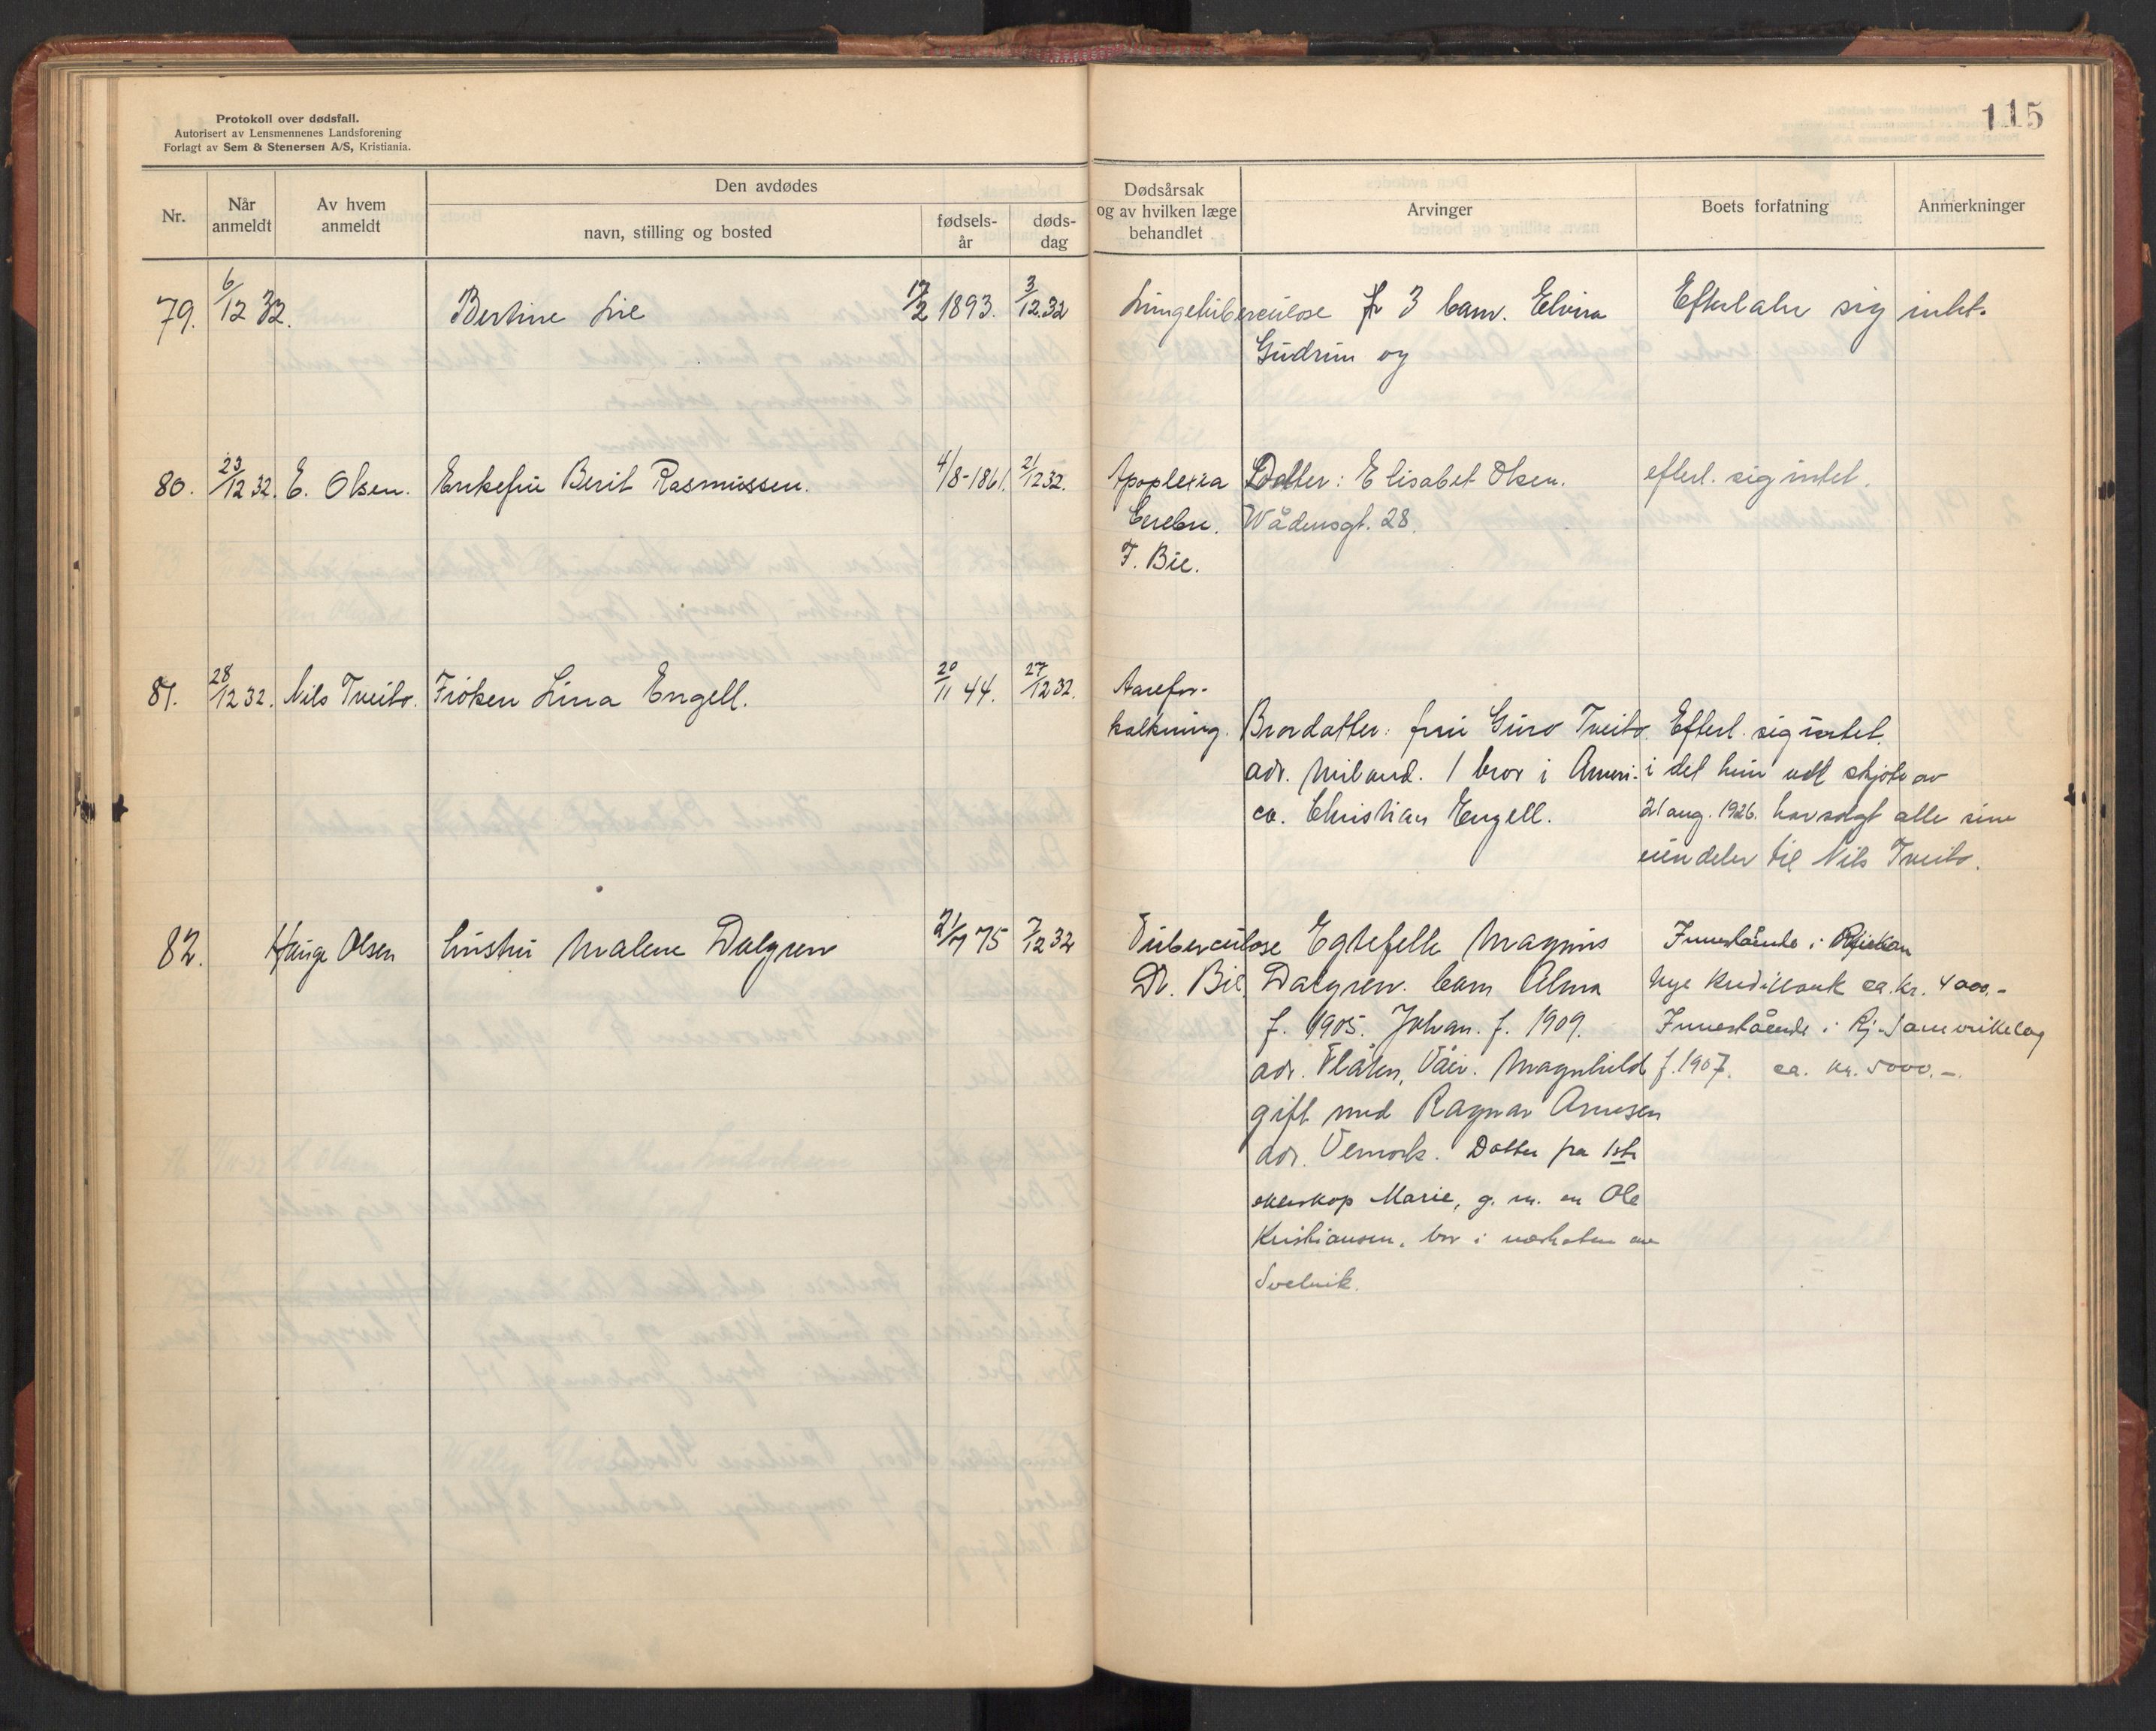 Protokoll over dødsfall.
Autorisert av Lensmennenes Landsforening
Forlagt av Sem & Stenersen A/S, Kristiania.
115
Nr.
Når anmeldt
Av hvem anmeldt
Den avdødes
navn, stilling og bosted
fødsels-
år
døds-
dag
Dødsårsak
og av hvilken læge
behandlet
Arvinger
Boets forfatning
Anmerkninger
79. 6/12 32. Bertine Lie 17/2 1893. 3/12.32 Lungetuberculose 3 barn. Elvira Efterlater sig intet.
Gudrun og
80. 23/12 32. E. Olsen. Enkefru Berit Rasmussen. 4/8-1861. 21/12 32. Apoplexia Datter: Elisabet Olsen. efterl. sig intet.
Cerebri. Wådensgt. 28.
F. Bie.
81. 28/12 32. Nils Tveito. Frøken Lina Engell. 20/11 44. 27/12 32. Aarefor-
kalkning. Brordatter: fru Guro Tveito. Efterl. sig intet,
adr. Miland. 1 bror i Ameri- i det hun ved skjøte av
ca. Christian Engell. 21 aug. 1926. har solgt alle sine
eiendeler til Nils Tveito.
82. Hauge Olsen hustru Malene Dalgren 21/7 75 7/12 32 Tuberculose Egtefelle Magnus Innestående i Rjukan
Dr. Bie. Dalgren. barn Alma Nye Kreditbank ca. kr. 4000,-
f. 1905. Johan. f. 1909. Innestående i Rj. Samvirkelag
adr. Flåten, Våer. Magnhild f. 1907. ca. kr. 5000.-
gift med Ragnar Arnesen
adr. Vemork. Datter fra 1ste
ekteskap Marie, g. m. en Ole
Kristiansen, bor i nærheten av
Svelvik.